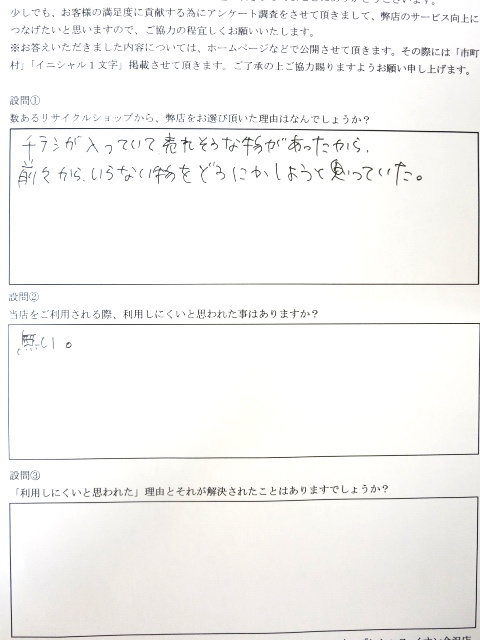 少しでも、お客様の満足度に貢献する為にアンケート調査をさせて頂きまして、弊店のサービス向上に
つなげたいと思いますので、ご協力の程宜しくお願いいたします。
※お答えいただきました内容については、ホームページなどで公開させて頂きます。その際には「市町
村」「イニシャル１文字」掲載させて頂きます。ご了承の上ご協力賜りますようお願い申し上げます。
設問①
数あるリサイクルショップから、弊店をお選び頂いた理由はなんでしょうか？
チラシが入っていて売れそうな物があったから、
前々から、いらない物をどうにかしようと思っていた。
設問②
当店をご利用される際、利用しにくいと思われた事はありますか？
無い。
設問③
「利用しにくいと思われた」理由とそれが解決されたことはありますでしょうか？